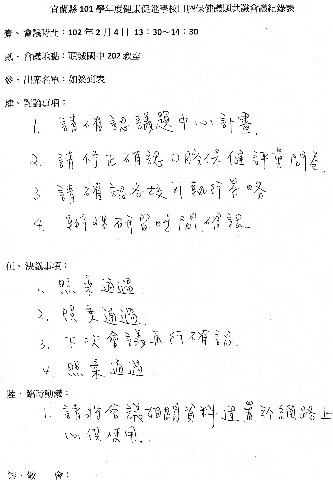 宜蘭縣101學年度健康促進學校口腔保健議題共識會議紀錄表
壹、會議時間：102年2月4日 13：30~14：30
貳、會議地點：頭城國中202教室
參、出席名單：如簽到表
肆、討論事項：
1. 請確認議題中心計畫.
2. 請修正確認口腔保健評量問卷
3 請確認各校可執行策略
4. 研習時間確認
伍、決議事項：
1. 照案通過.
2. 照案通過.
3. 下次會議再行確認.
4 照案通過
陸、臨時動議：
1. 請將會議相關資料建置於網路上
以供使用.
柒、散　會：